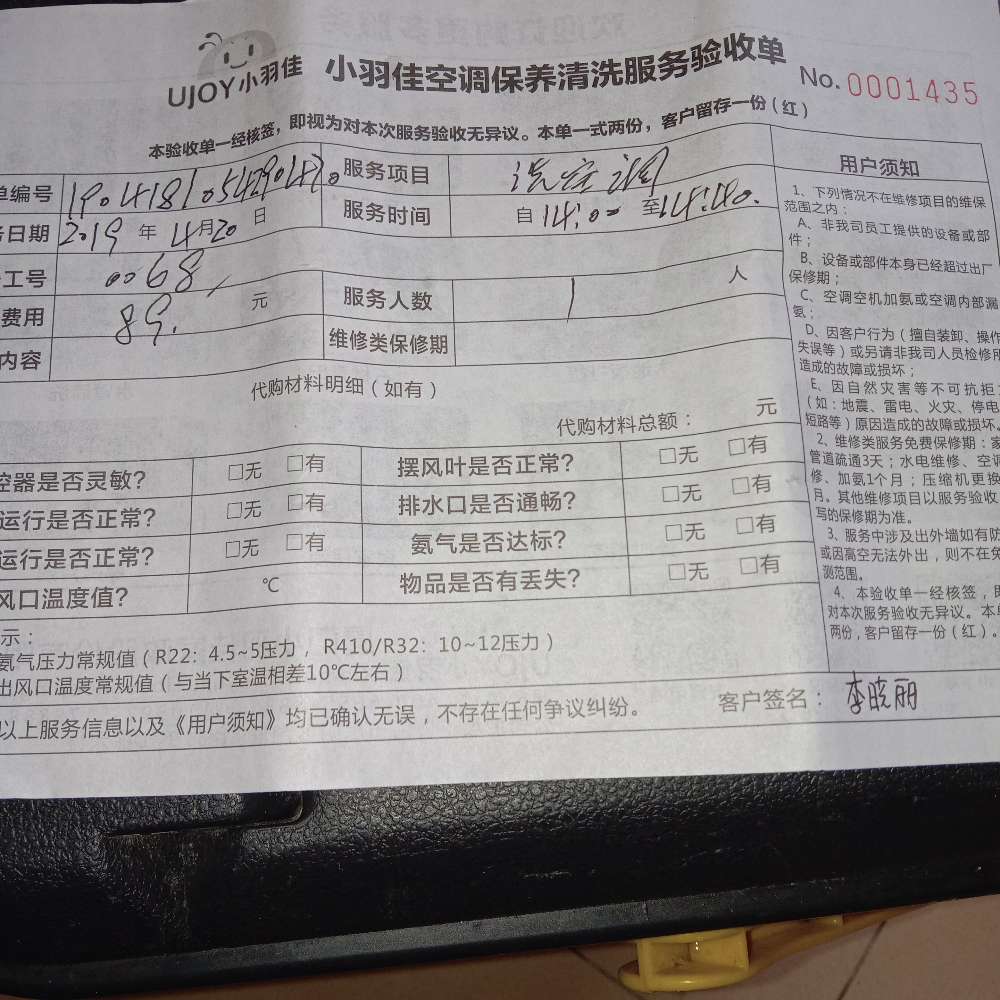 UJOY小羽佳 小羽佳空调保养清洗服务验收单 No. 0001435
本验收单一经核签，即视为对本次服务验收无异议。本单一式两份，客户留存一份（红）
单编号 服务项目 洗空调
日期 2019 年 4月20日 服务时间 自14:00至14:40.
工号 0068
费用 89. 元 服务人数 1 人
内容 维修类保修期
代购材料明细（如有）
代购材料总额： 元
控器是否灵敏？ □无 □有 摆风叶是否正常？ □无 □有
运行是否正常？ □无 □有 排水口是否通畅？ □无 □有
运行是否正常？ □无 □有 氨气是否达标？ □无 □有
风口温度值？ ℃ 物品是否有丢失？ □无 □有
示：
氨气压力常规值（R22：4.5~5压力，R410/R32：10~12压力）
出风口温度常规值（与当下室温相差10℃左右）
以上服务信息以及《用户须知》均已确认无误，不存在任何争议纠纷。 客户签名：李晓丽
用户须知
1、下列情况不在维修项目的维保
范围之内：
A、非我司员工提供的设备或部
件；
B、设备或部件本身已经超过出厂
保修期；
C、空调空机加氨或空调内部漏
氨；
D、因客户行为（擅自装卸、操作
失误等）或另请非我司人员检修所
造成的故障或损坏；
E、因自然灾害等不可抗拒
（如：地震、雷电、火灾、停电
短路等）原因造成的故障或损坏。
2、维修类服务免费保修期：家
管道疏通3天；水电维修、空调
修、加氨1个月；压缩机更换
月。其他维修项目以服务验收
写的保修期为准。
3、服务中涉及出外墙如有防
或因高空无法外出，则不在免
测范围。
4、本验收单一经核签，即
对本次服务验收无异议。本单
两份，客户留存一份（红）。